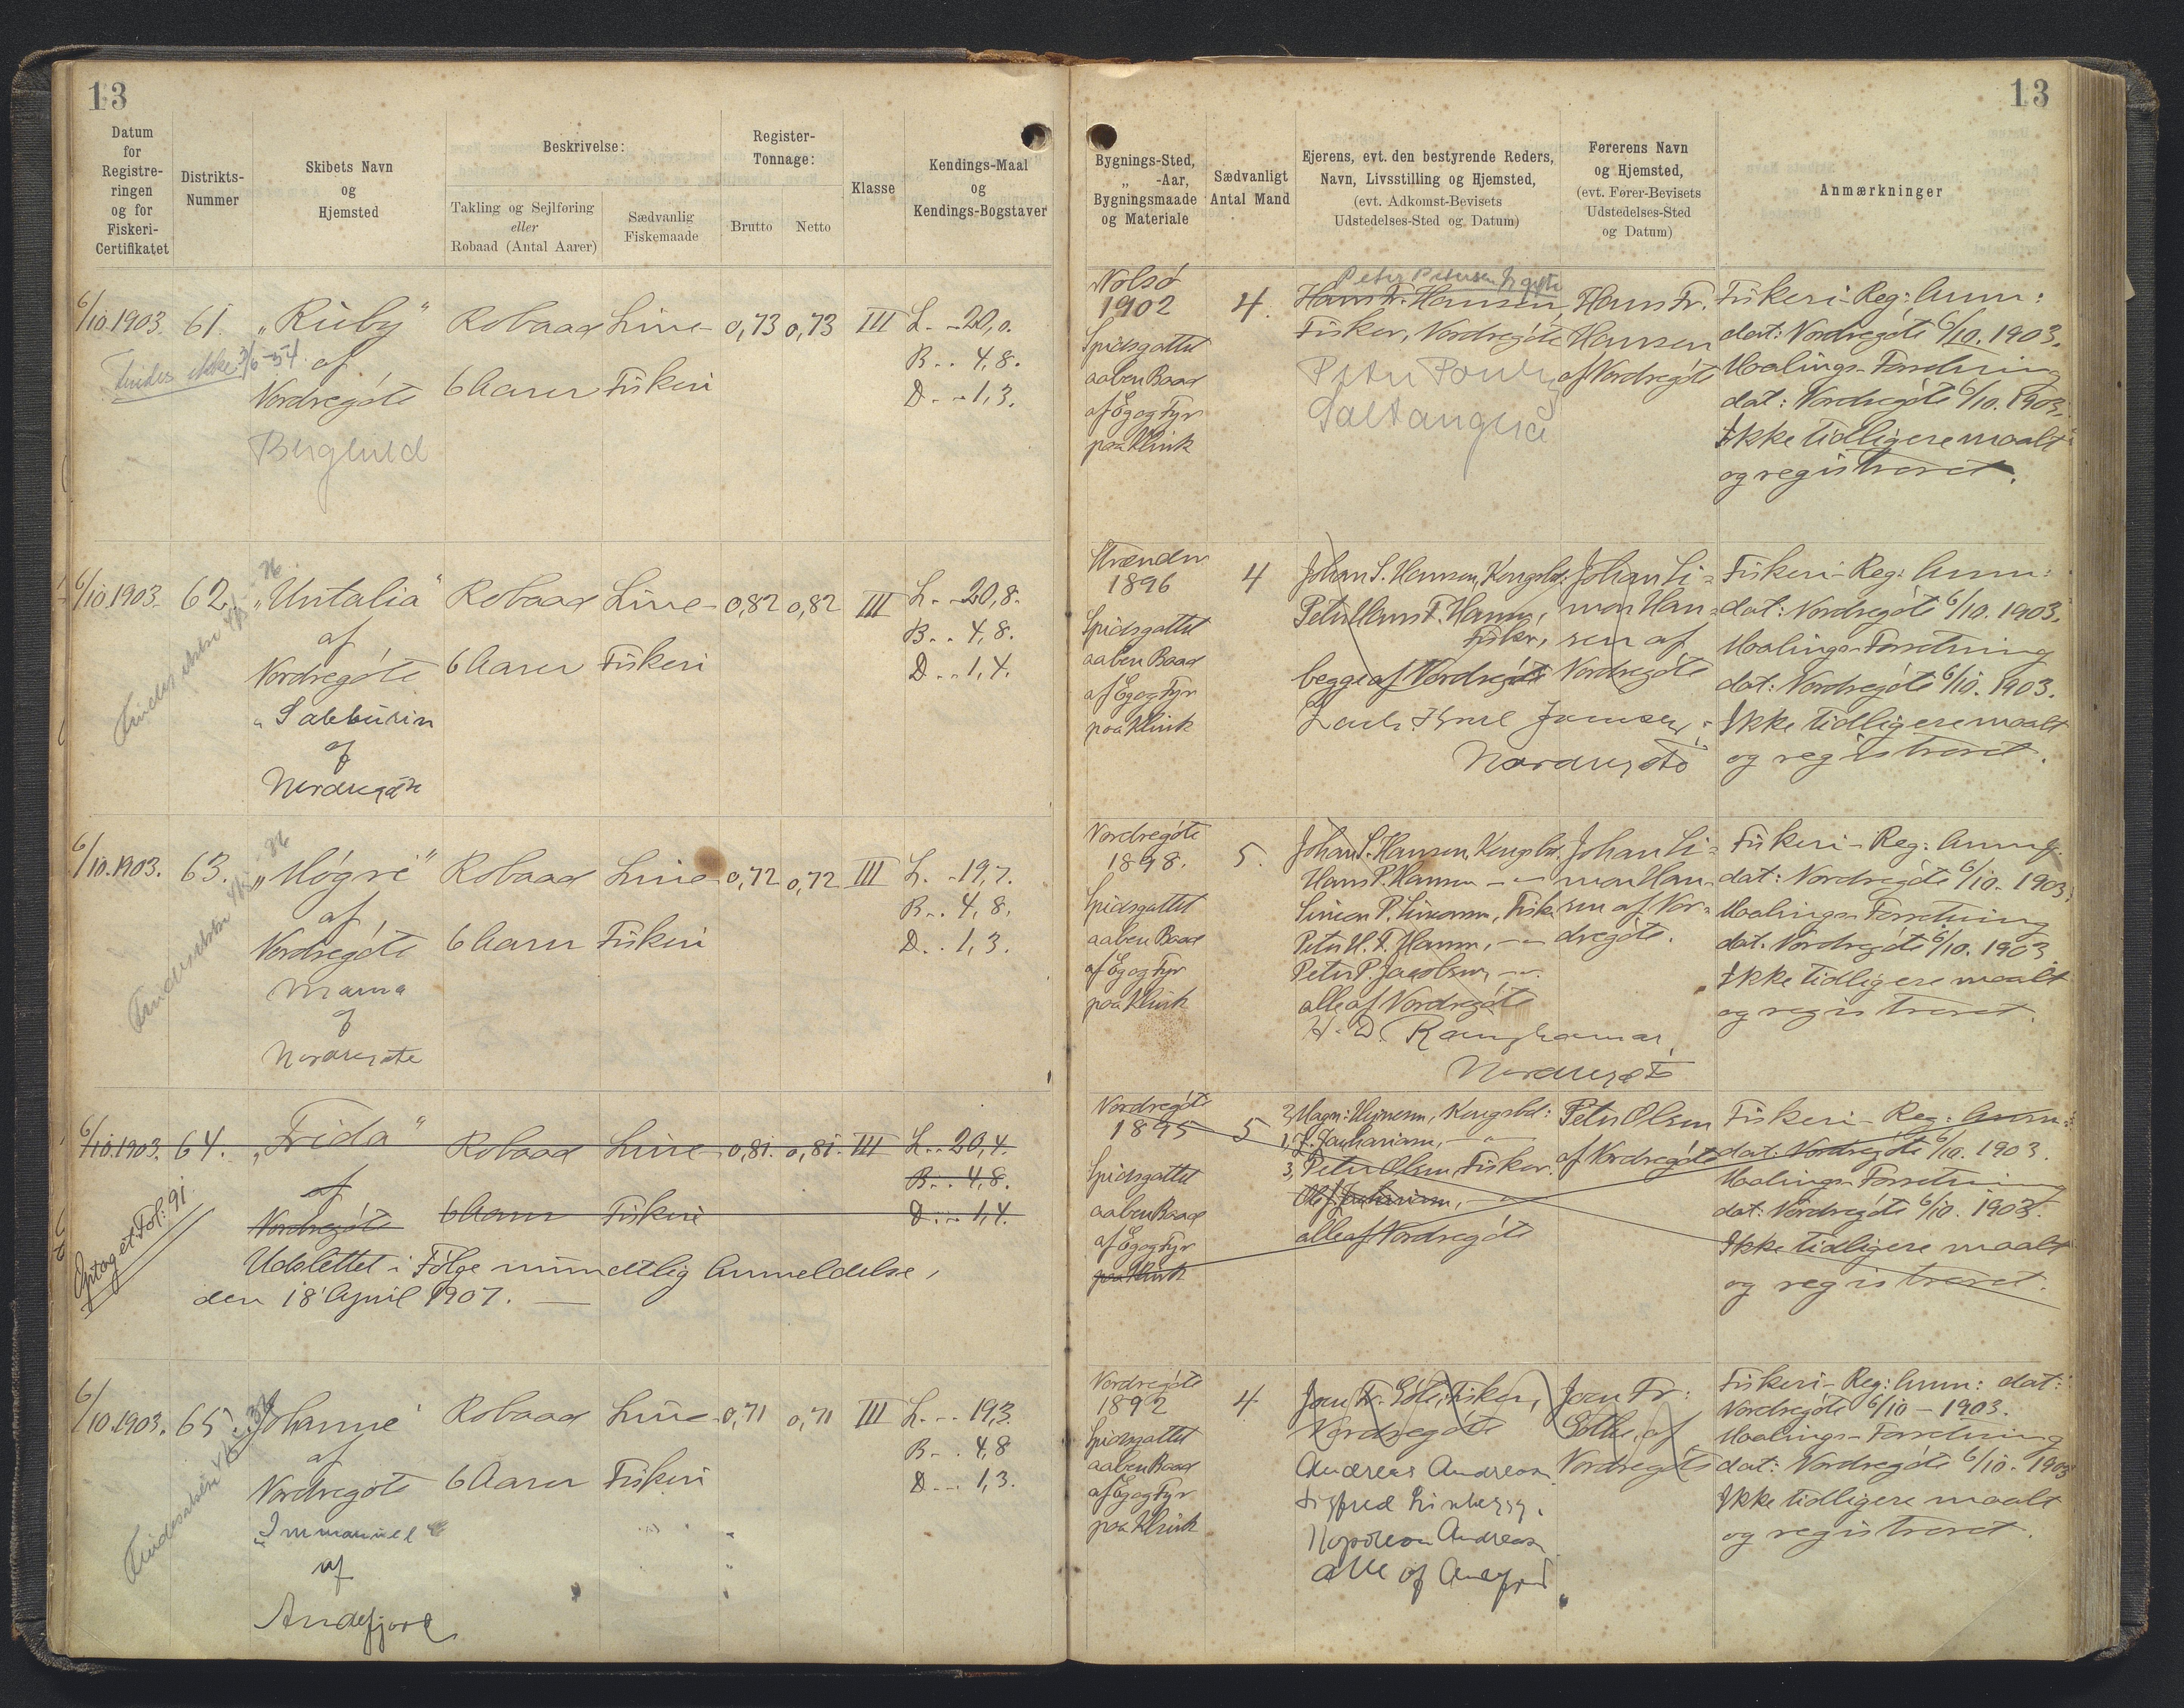 13
13
Datum
for
Registre-
ringen
og for
Fiskeri-
Certifikatet
Distrikts-
Nummer
Skibets Navn
og
Hjemsted
Beskrivelse:
Takling og Sejlføring
eller
Robaad (Antal Aarer)
Sædvanlig
Fiskemaade
Register-
Tonnage:
Brutto
Netto
Klasse
Kendings-Maal
og
Kendings-Bogstaver
Bygnings-Sted,
„ -Aar,
Bygningsmaade
og Materiale
Sædvanligt
Antal Mand
Ejerens, evt. den bestyrende Reders,
Navn, Livsstilling og Hjemsted,
(evt. Adkomst-Bevisets
Udstedelses-Sted og Datum)
Førerens Navn
og Hjemsted,
(evt. Fører-Bevisets
Udstedelses-Sted
og Datum)
Anmærkninger
6/10.1903.
Findes ikke 3/6-54
61.
„Ruby“
af
Nordregøte
Berghild
Robaad
6 Aarer
Line-
Fiskeri
0,73
0,73
III
L. - 20,0.
B. . 4,8.
D. - 1,3.
Nolsø
1902
Spidsgattet
aaben Baad
af Eg og Fyr
paa Klink
4.
Hans Fr. Hansen,
Fisker, Nordregøte
Hans Fr.
Hansen
af Nordregøte
Fiskeri-Reg: Anm:
dat: Nordregøte 6/10. 1903.
Maalings-Forretning
dat: Nordregøte 6/10. 1903.
Ikke tidligere maalt
og registreret.
6/10.1903.
62.
„Untalia“
af
Nordregøte
af
Nordregøte
Robaad
6 Aarer
Line-
Fiskeri
0,82
0,82
III
L. - 20,8.
B. . 4,8.
D. . 1,4.
1896
Spidsgattet
aaben Baad
af Eg og Fyr
paa Klink
4
Johan S. Hansen, Kongsbd:
Fisker,
begge af Nordregøte
Nordregøte
Johan Si-
mon Han-
sen af
Nordregøte
Fiskeri-Reg: Anm:
dat: Nordregøte 6/10. 1903.
Maalings-Forretning
dat: Nordregøte 6/10. 1903.
Ikke tidligere maalt
og registreret.
6/10.1903.
63.
„Møgre“
af
Nordregøte
af
Nordregøte
Robaad
6 Aarer
Line-
Fiskeri
0,72
0,72
III
L. - 19,7.
B. . 4,8.
D. . 1,3.
Nordregøte
1898.
Spidsgattet
aaben Baad
af Eg og Fyr
paa Klink
5.
Johan S. Hansen, Kongsbd.
Hans P. Hansen — „ —
Simon P. Simonsen, Fisk.
Peter P. Jacobsen, — „ —
alle af Nordregøte
Nordregøte
Johan Si-
mon Han-
sen af Nor-
dregøte.
Fiskeri-Reg: Anm:
dat: Nordregøte 6/10. 1903.
Maalings-Forretning
dat. Nordregøte 6/10. 1903
Ikke tidligere maalt
og registreret.
6/10.1903.
Optaget Fol: 91
64.
„Frida“
af
Nordregøte
Robaad
6 Aarer
Line-
Fiskeri
0,81.
0,81.
III
L. . 20,4.
B. . 4,8.
D. . . 1,4.
Udslettet i Følge mundtlig Anmeldelse,
den 18' April 1907. —
Nordregøte
1895
Spidsgattet
aaben Baad
af Eg og Fyr
paa Klink
5
3, Peter Olsen, Fisker.
alle af Nordregøte
Peter Olsen
af Nordregøte
Fiskeri-Reg: Anm:
dat: Nordregøte 6/10. 1903.
Maalings-Forretning
dat: Nordregøte 6/10. 1903.
Ikke tidligere maalt
og registreret.
6/10.1903.
65.
Johanne
af
Nordregøte
„Immanuel“
af
Andefjord
Robaad
6 Aarer
Line-
Fiskeri
0,71
0,71
III
L. - - 19,3.
B. - . 4,8
D. - - 1,3.
Nordregøte
1892
Spidsgattet
aaben Baad
af Eg og Fyr
paa Klink
4
Joen Fr. Gøte, Fisker,
Nordregøte
Andreas Andreasen
Napoleon Andreasen
alle af Andefjord
Joen Fr:
Gøthe, af
Nordregøte
Fiskeri-Reg: Anm: dat:
Nordregøte 6/10 - 1903.
Maalings-Forretning
dat: Nordregøte 6/10. 1903
Ikke tidligere maalt
og registreret.